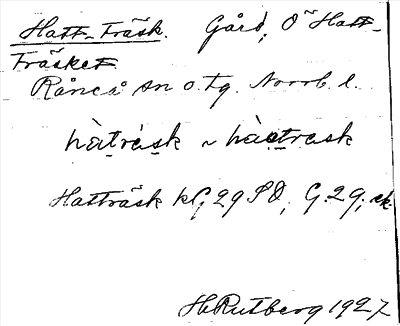 Hatt-Träsk. Gård, Ö Hatt-
Träsket
Råneå sn o. tg. Norrb. l.
hàtrésk ~ hàtresk
Hatträsk kC; 29 SO, G. 29; ek.
H Rutberg 1927